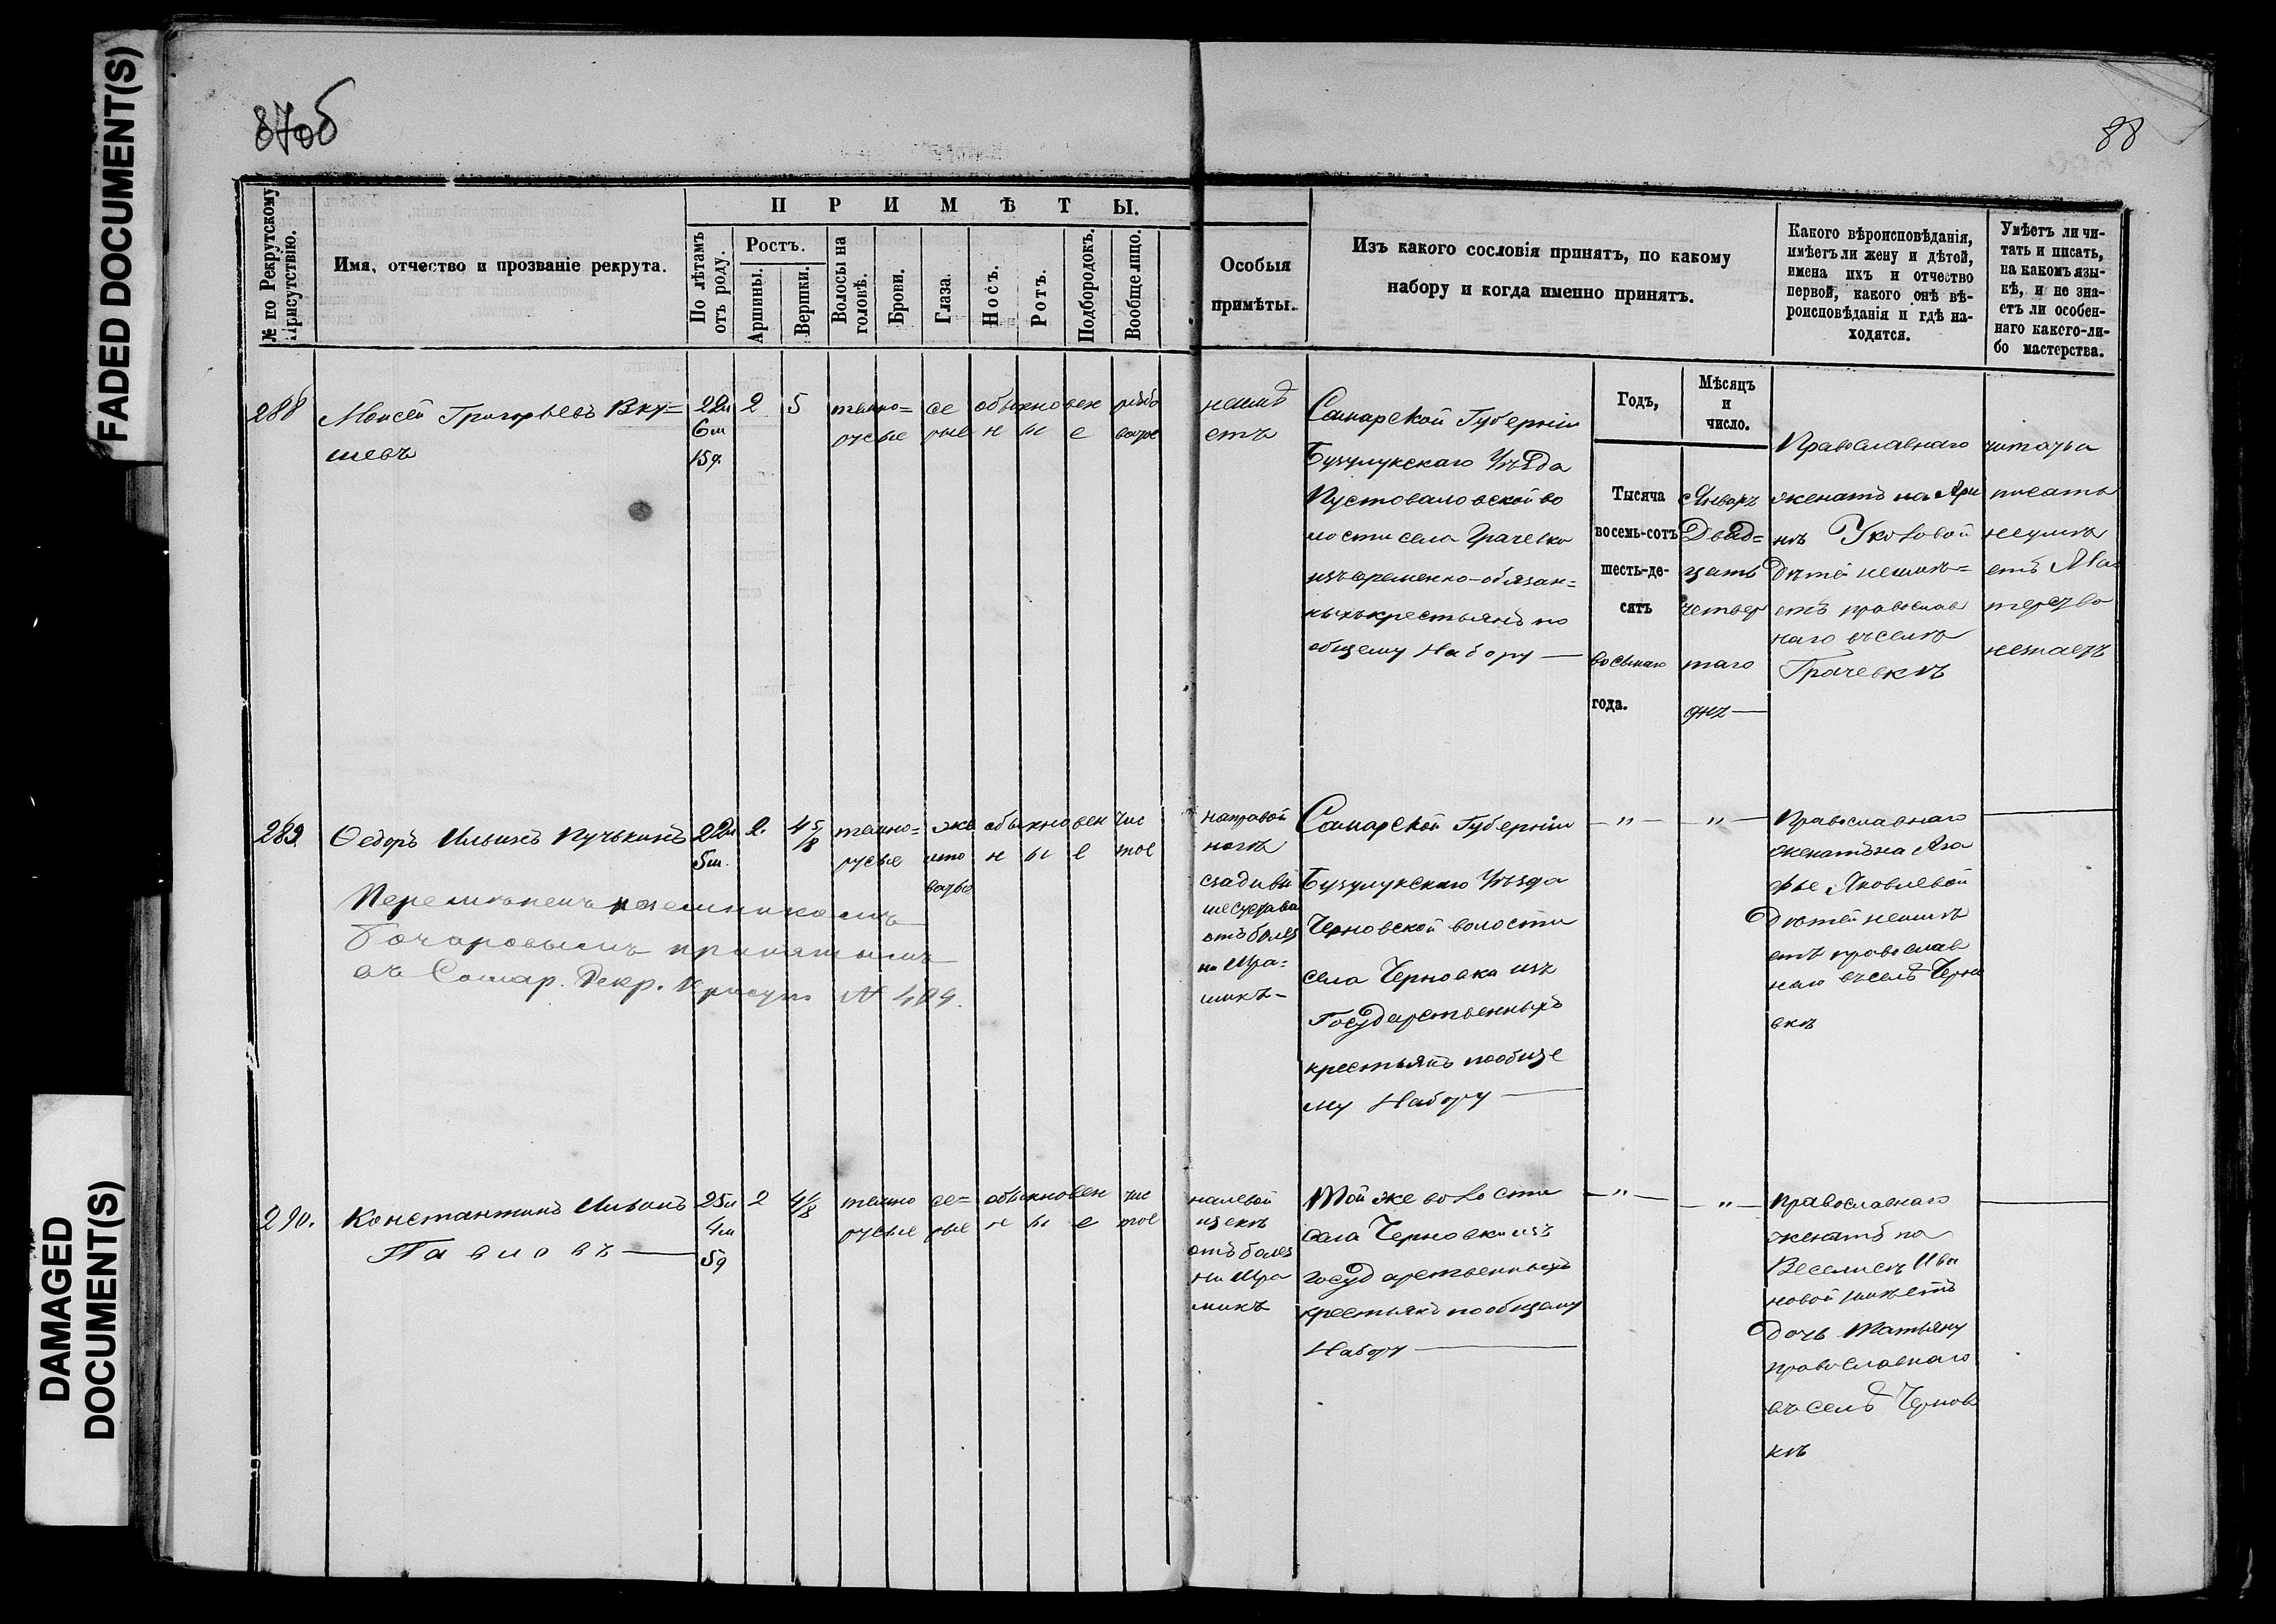 FADED DOCUMENT(S)
DAMAGED
DOCUMENT(S)
87об
88
№ по Рекрутскому
Присутствію.
Имя, отчество и прозваніе рекрута.
ПРИМѢТЫ.
По лѣтамъ
отъ роду.
Ростъ.
Аршины.
Вершки.
Волосы на
головѣ.
Брови.
Глаза.
Носъ.
Ротъ.
Подбородокъ.
Вообще лицо.
Особыя
примѣты.
Изъ какого сословія принятъ, по какому
набору и когда именно принятъ.
Какого вѣроисповѣданія,
имѣетъ ли жену и дѣтей,
имена ихъ и отчество
первой, какого онѣ вѣ-
роисповѣданія и гдѣ на-
ходятся.
Умѣетъ ли чи-
тать и писать,
на какомъ язы-
кѣ, и не зна-
етъ ли особен-
наго какого-ли-
бо мастерства.
Годъ,
Мѣсяцъ
и
число.
288
Моисей Григорьевъ Вку=
шевъ
22л
6м
15д.
2
5
темно=
русые
се
рые
обыкновен
н ы е
рябо
ватое
неимѣ
етъ
Самарской Губерніи
Бузулукскаго Уѣзда
Пустоваловской во
лости села Грачевки
изъ временно-обязан=
ныхъ крестьянъ по
общему Набору —
Тысяча
восемь-сотъ
шесть-де-
сятъ
восьмаго
года.
Январь
Двад=
цать
четвер
таго
дня —
Православнаго
женатъ на Ари
нѣ
Дѣтей неимѣ=
етъ православ
наго въ селѣ
Грачевкѣ
читать и
писать
неумѣ
етъ Мас
терства
незнаетъ
289.
Ѳедоръ Ильинъ Пучькинъ
22л
5м.
2.
4 5/8
темно=
русые
же
лто
ватые
обыкновен
н ы е
чис
тое
Перемѣненъ наемникомъ
Бочаровымъ принятымъ
въ Самар. Рекр. Присут. № 404.
на правой
ногѣ
сзади
отъ болез
ни Шра=
микъ —
Самарской Губерніи
Бузулукскаго Уѣзда
Черновской волости
села Черновки изъ
Государственныхъ
крестьянъ по обще
му Набору —
— " —
— " —
Православнаго
женатъ на Ага
фье Яковлевой
Дѣтей неимѣ
етъ православ
наго въ селѣ Черно
вкѣ
290.
Константинъ Ильинъ
Павловъ —
25л
4м
5д
2
4 1/8
темно
русые
се=
рые
обыкновен
н ы е
чис
тое
на левой
щекѣ
отъ болез
ни Шра
микъ
Той же волости
села Черновки изъ
государственныхъ
крестьянъ по общему
Набору —
— " —
— " —
Православнаго
женатъ на
Ива
новой имѣетъ
дочь Татьяну
православнаго
въ селѣ Чернов
кѣ